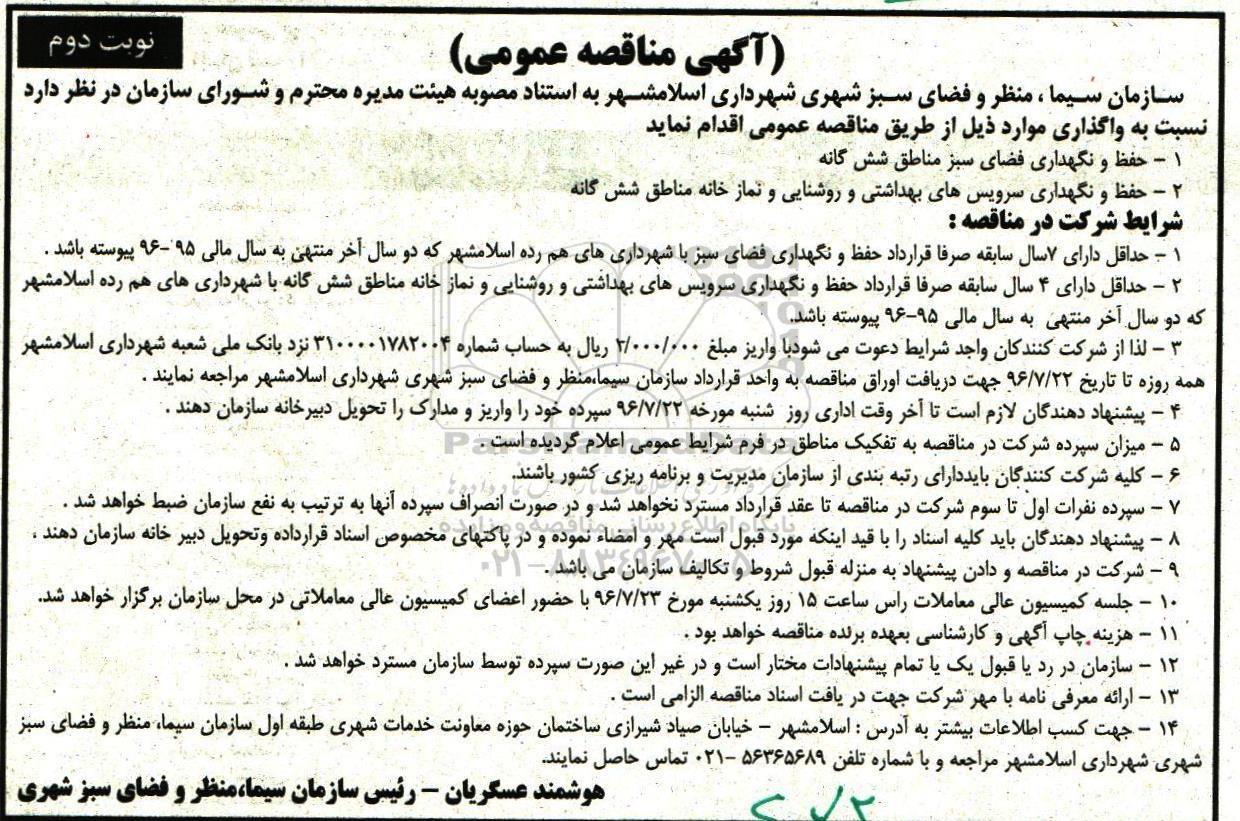 نوبت دوم
(آگهی مناقصه عمومی)
سازمان سیما ، منظر و فضای سبز شهری شهرداری اسلامشهر به استناد مصوبه هیئت مدیره محترم و شورای سازمان در نظر دارد
نسبت به واگذاری موارد ذیل از طریق مناقصه عمومی اقدام نماید
۱ - حفظ و نگهداری فضای سبز مناطق شش گانه
۲ - حفظ و نگهداری سرویس های بهداشتی و روشنایی و نماز خانه مناطق شش گانه
شرایط شرکت در مناقصه :
۱ - حداقل دارای ۷سال سابقه صرفا قرارداد حفظ و نگهداری فضای سبز با شهرداری های هم رده اسلامشهر که دو سال آخر منتهی به سال مالی ۹۵ -۹۶ پیوسته باشد .
۲ - حداقل دارای ۴ سال سابقه صرفا قرارداد حفظ و نگهداری سرویس های بهداشتی و روشنایی و نماز خانه مناطق شش گانه با شهرداری های هم رده اسلامشهر
که دو سال آخر منتهی به سال مالی ۹۵-۹۶ پیوسته باشد.
۳ - لذا از شرکت کنندکان واجد شرایط دعوت می شودبا واریز مبلغ ۲/۰۰۰/۰۰۰ ریال به حساب شماره ۳۱۰۰۰۰۱۷۸۲۰۰۴ نزد بانک ملی شعبه شهرداری اسلامشهر
همه روزه تا تاریخ ۹۶/۷/۲۲ جهت دریافت اوراق مناقصه به واحد قرارداد سازمان سیما،منظر و فضای سبز شهری شهرداری اسلامشهر مراجعه نمایند .
۴ - پیشنهاد دهندگان لازم است تا آخر وقت اداری روز شنبه مورخه ۹۶/۷/۲۲ سپرده خود را واریز و مدارک را تحویل دبیرخانه سازمان دهند .
۵ - میزان سپرده شرکت در مناقصه به تفکیک مناطق در فرم شرایط عمومی اعلام گردیده است .
۶ - کلیه شرکت کنندگان بایددارای رتبه بندی از سازمان مدیریت و برنامه ریزی کشور باشند
۷ - سپرده نفرات اول تا سوم شرکت در مناقصه تا عقد قرارداد مسترد نخواهد شد و در صورت انصراف سپرده آنها به ترتیب به نفع سازمان ضبط خواهد شد .
۸ - پیشنهاد دهندگان باید کلیه اسناد را با قید اینکه مورد قبول است مهر و امضاء نموده و در پاکتهای مخصوص اسناد قرارداده وتحویل دبیر خانه سازمان دهند .
۹ - شرکت در مناقصه و دادن پیشنهاد به منزله قبول شروط و تکالیف سازمان می باشد .
۱۰ - جلسه کمیسیون عالی معاملات راس ساعت ۱۵ روز یکشنبه مورخ ۹۶/۷/۲۳ با حضور اعضای کمیسیون عالی معاملاتی در محل سازمان برگزار خواهد شد.
۱۱ - هزینه چاپ آگهی و کارشناسی بعهده برنده مناقصه خواهد بود .
۱۲ - سازمان در رد یا قبول یک یا تمام پیشنهادات مختار است و در غیر این صورت سپرده توسط سازمان مسترد خواهد شد .
۱۳ - ارائه معرفی نامه با مهر شرکت جهت در یافت اسناد مناقصه الزامی است .
۱۴ - جهت کسب اطلاعات بیشتر به آدرس : اسلامشهر - خیابان صیاد شیرازی ساختمان حوزه معاونت خدمات شهری طبقه اول سازمان سیما، منظر و فضای سبز
شهری شهرداری اسلامشهر مراجعه و با شماره تلفن ۵۶۳۶۵۶۸۹ -۰۲۱ تماس حاصل نمایند.
هوشمند عسگریان - رئیس سازمان سیما،منظر و فضای سبز شهری